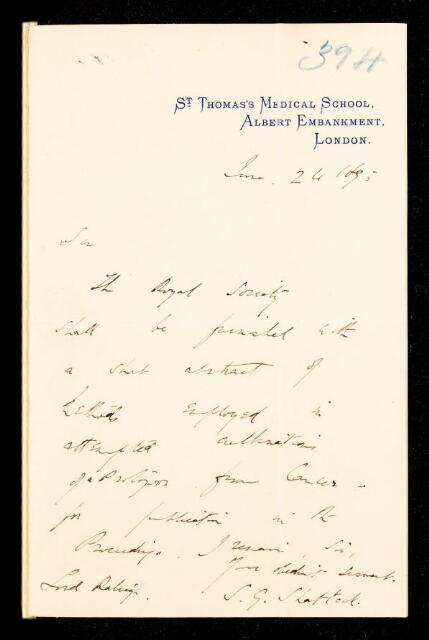 394
ST THOMAS'S MEDICAL SCHOOL,
ALBERT EMBANKMENT,
LONDON.
June. 24 1895
Sir
The Royal Society
shall be furnished with
a short abstract of
methods employed in
attempted cultivations
of a Protozoon from Cancer -
for publication in the
Proceedings. I remain, Sir,
Your obedient servant.
Lord Raleigh. S. G. Shattock.